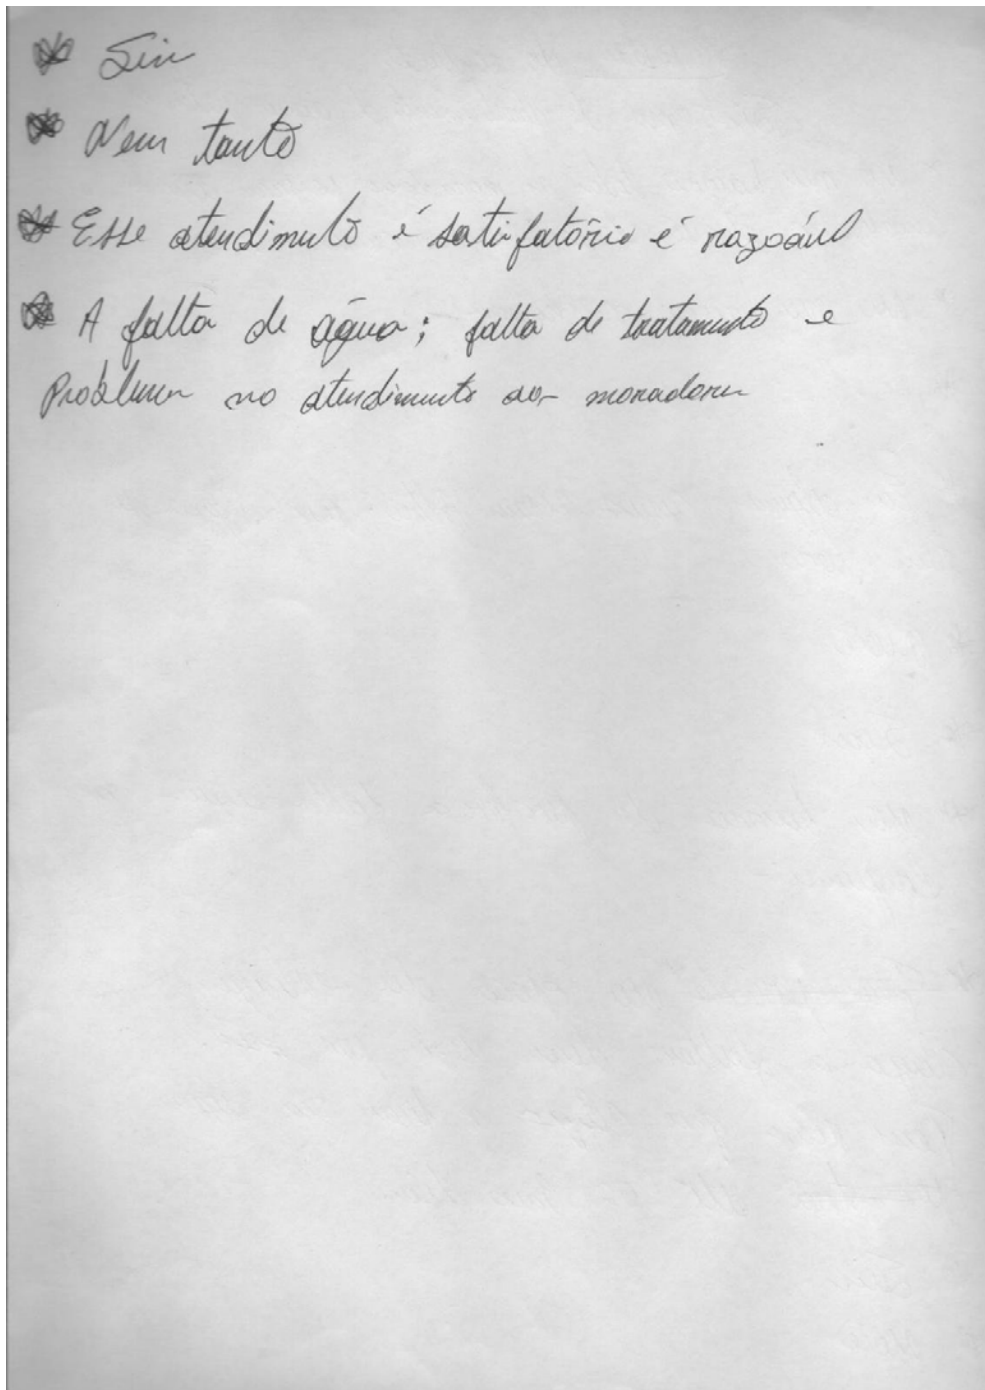 * Sim
* Nem tanto
* Esse atendimento é satisfatório é razoável
* A falta de água; falta de tratamento e
Problemas no atendimento aos moradores